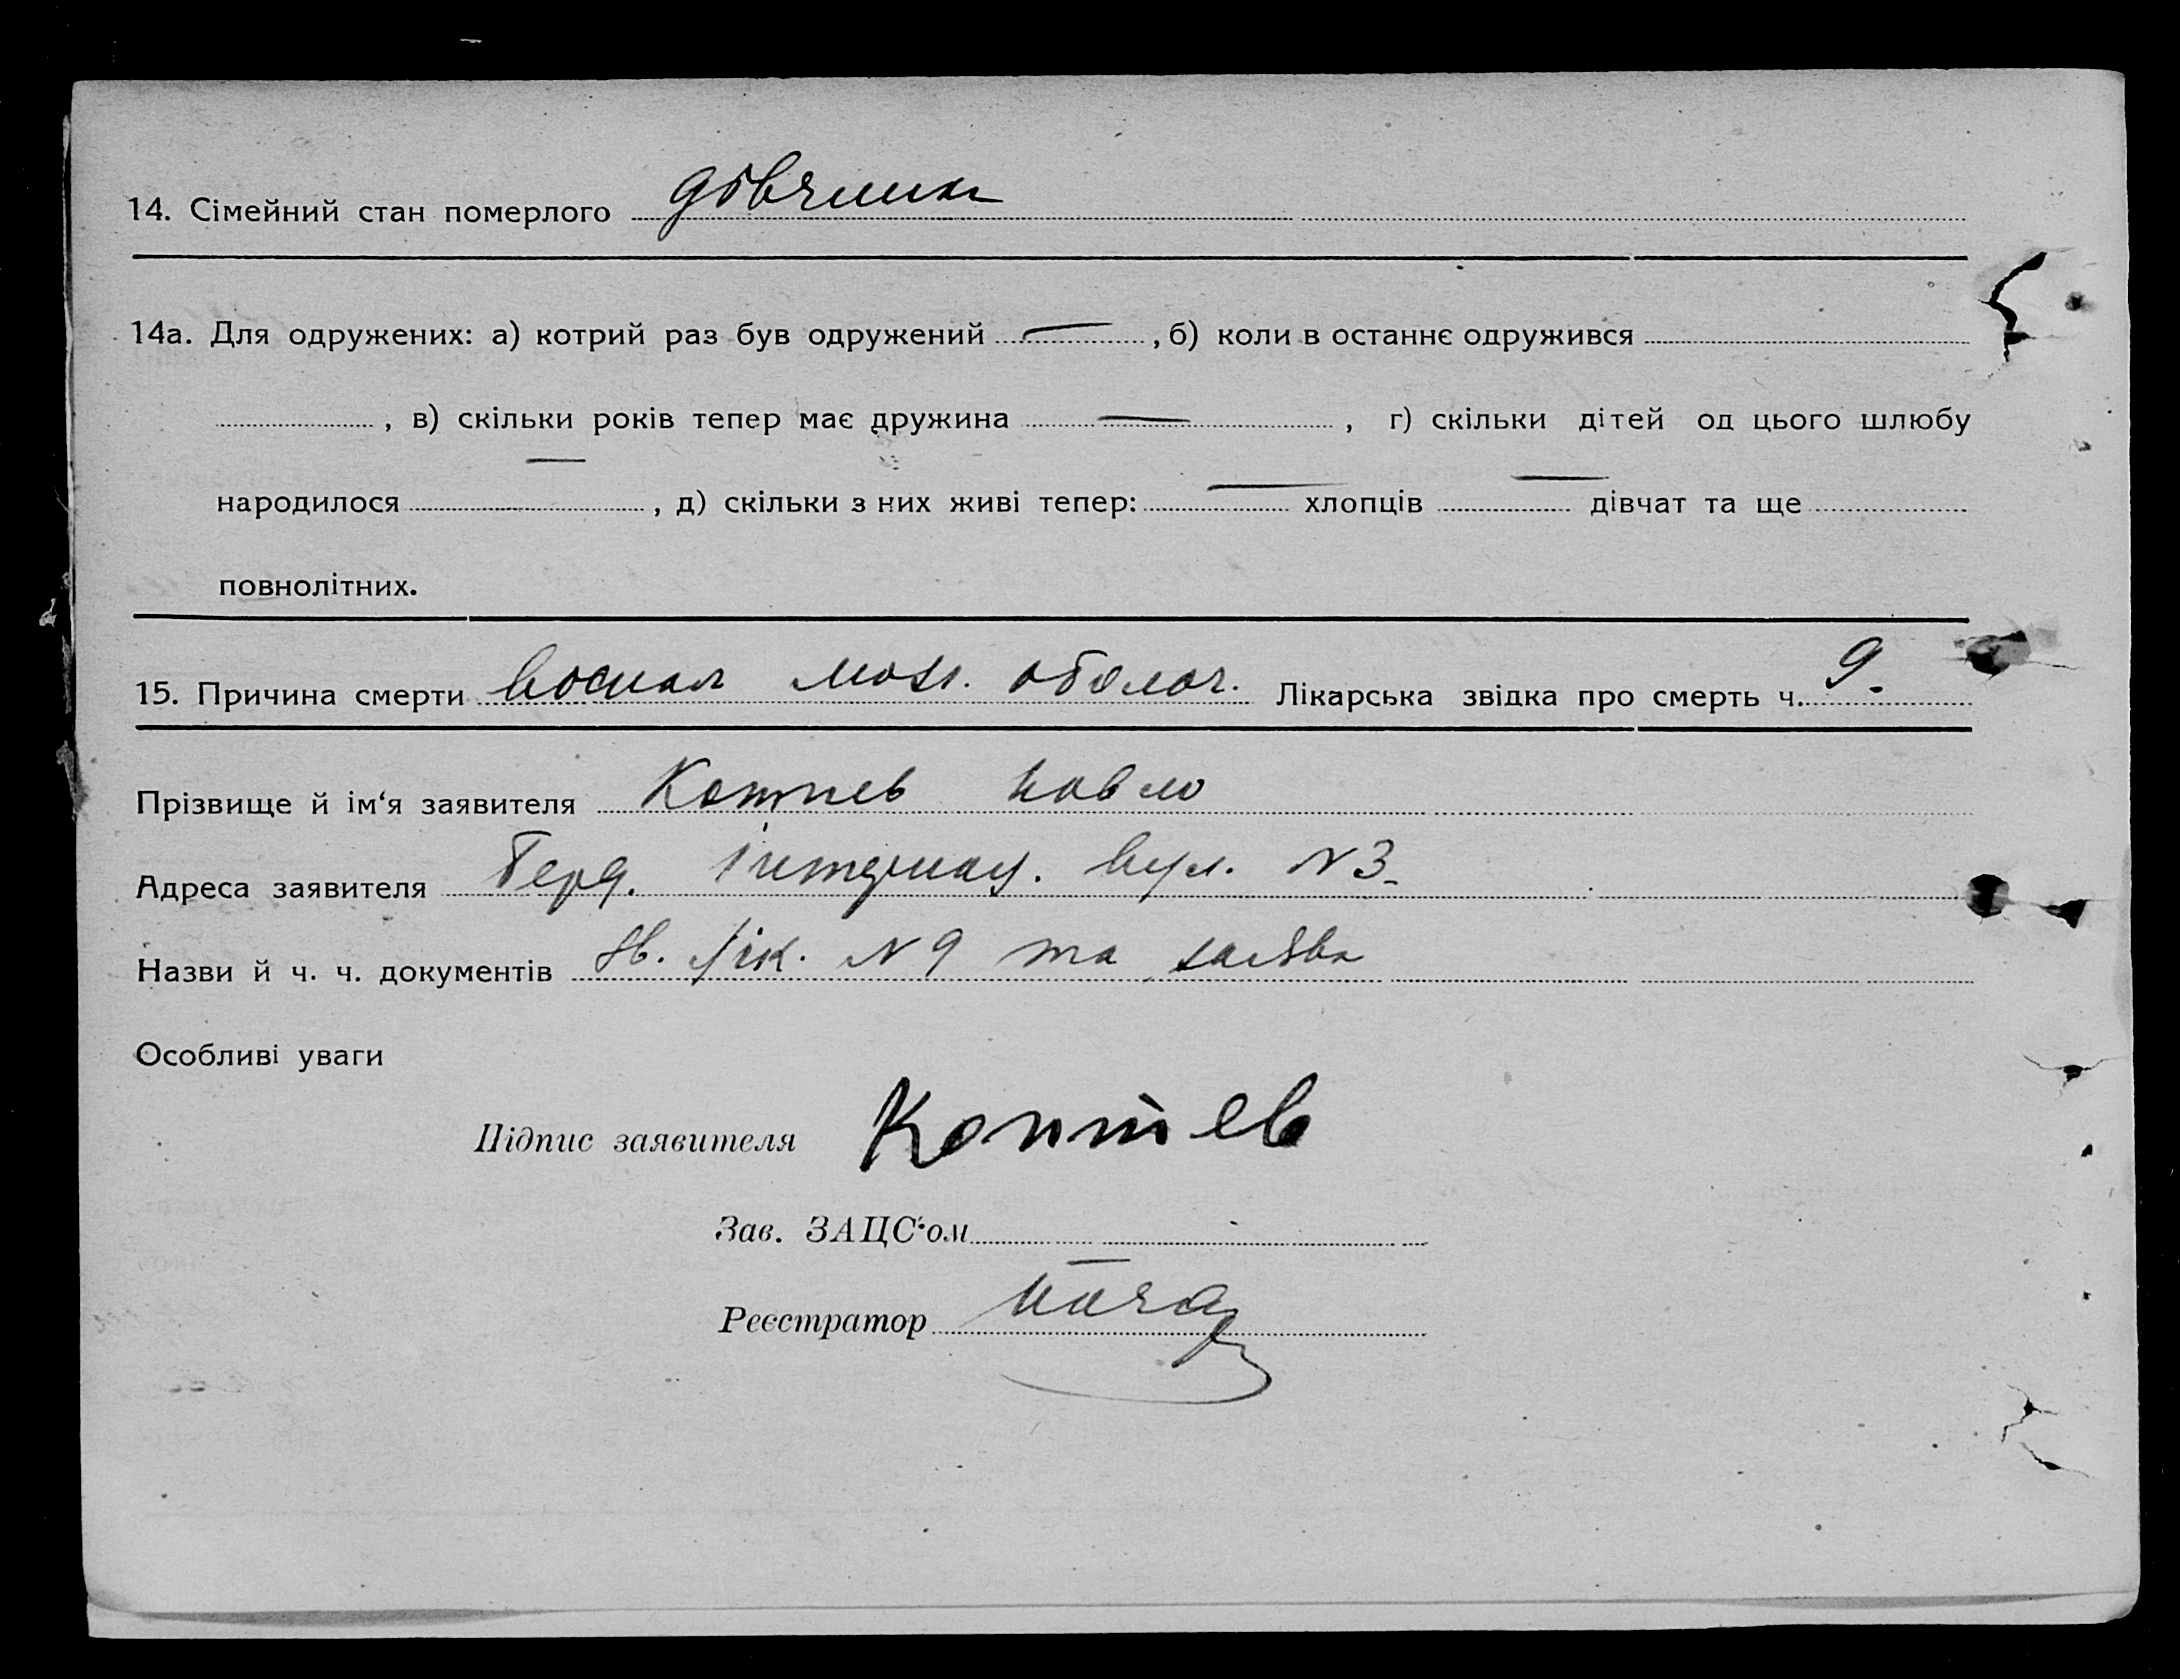 14. Сімейний стан померлого дівчина
14а. Для одружених: а) котрий раз був одружений — , б) коли в останнє одружився
, в) скільки років тепер має дружина — , г) скільки дітей од цього шлюбу
народилося — , д) скільки з них живі тепер: — хлопців — дівчат та ще
повнолітних.
15. Причина смерти воспал мозг. оболоч. Лікарська звідка про смерть ч. 9.
Прізвище й ім'я заявителя Коптев Павло
Адреса заявителя Берд. Інтернац. вул. N 3
Назви й ч. ч. документів Зв. лік. N 9 та заява
Особливі уваги
Підпис заявителя Коптев
Зав. ЗАЦС'ом
Реєстратор